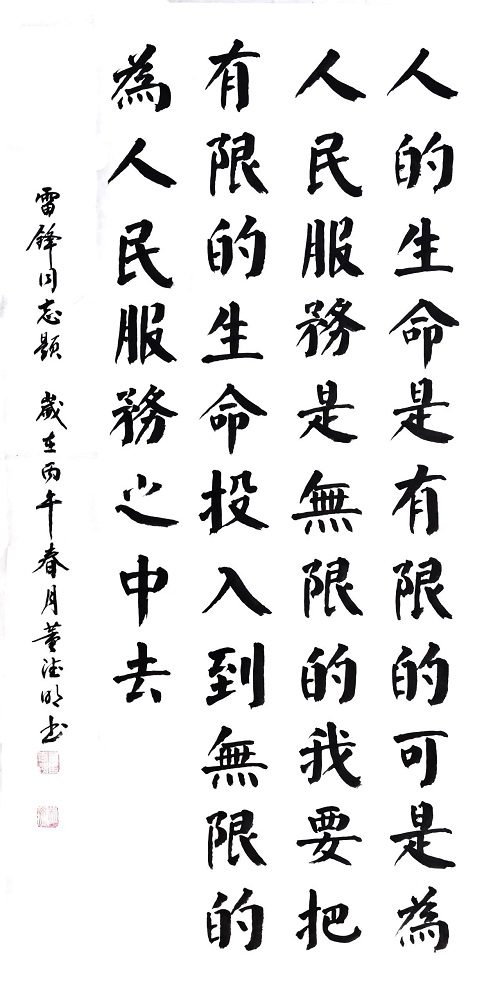 人的生命是有限的可是為
人民服務是無限的我要把
有限的生命投入到無限的
為人民服務之中去
雷鋒同志題 歲在丙午春月董德明书